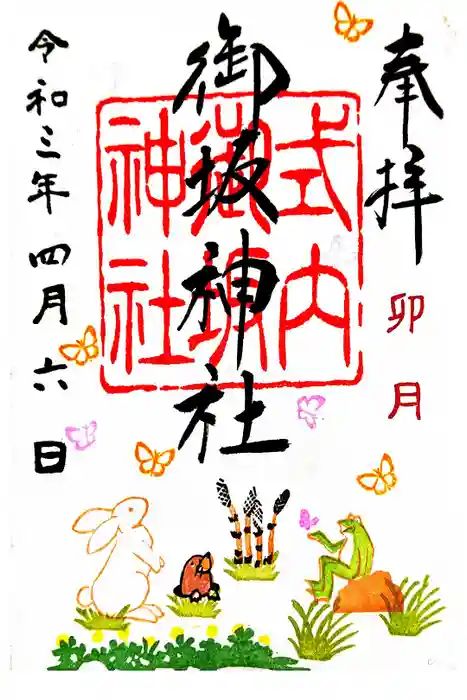 奉拝
卯月
御坂神社
式内
御坂
神社
令和三年 四月 六日